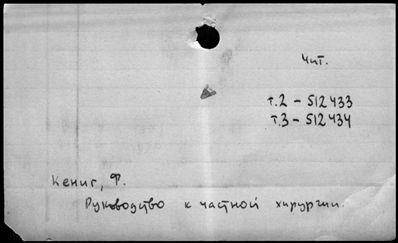 Чит.
т.2 - 512433
т.3 - 512434
Кениг, Ф.
Руководство к частной хирургии.